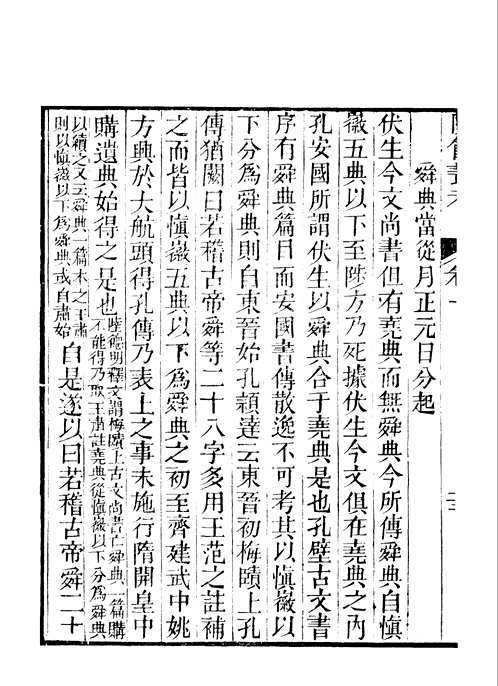 舜典當從月正元日分起
伏生今文尚書但有堯典而無舜典今所傳舜典自慎
徽五典以下至陟方乃死據伏生今文俱在堯典之內
孔安國所謂伏生以舜典合于堯典是也孔壁古文書
序有舜典篇目而安國書傳散逸不可考其以慎徽以
下分爲舜典則自東晉始孔穎達云東晉初梅賾上孔
傳猶闕曰若稽古帝舜等二十八字多用王范之註補
之而皆以慎徽五典以下爲舜典之初至齊建武中姚
方興於大航頭得孔傳乃表上之事未施行隋開皇中
購遺典始得之是也陸德明釋文謂梅賾上古文尚書亡舜典一篇購
不能得乃取王肅註堯典從慎徽以下分爲舜典
以續之又云舜典一篇本之王肅
則以慎徽以下爲舜典或自肅始自是遂以曰若稽古帝舜二十